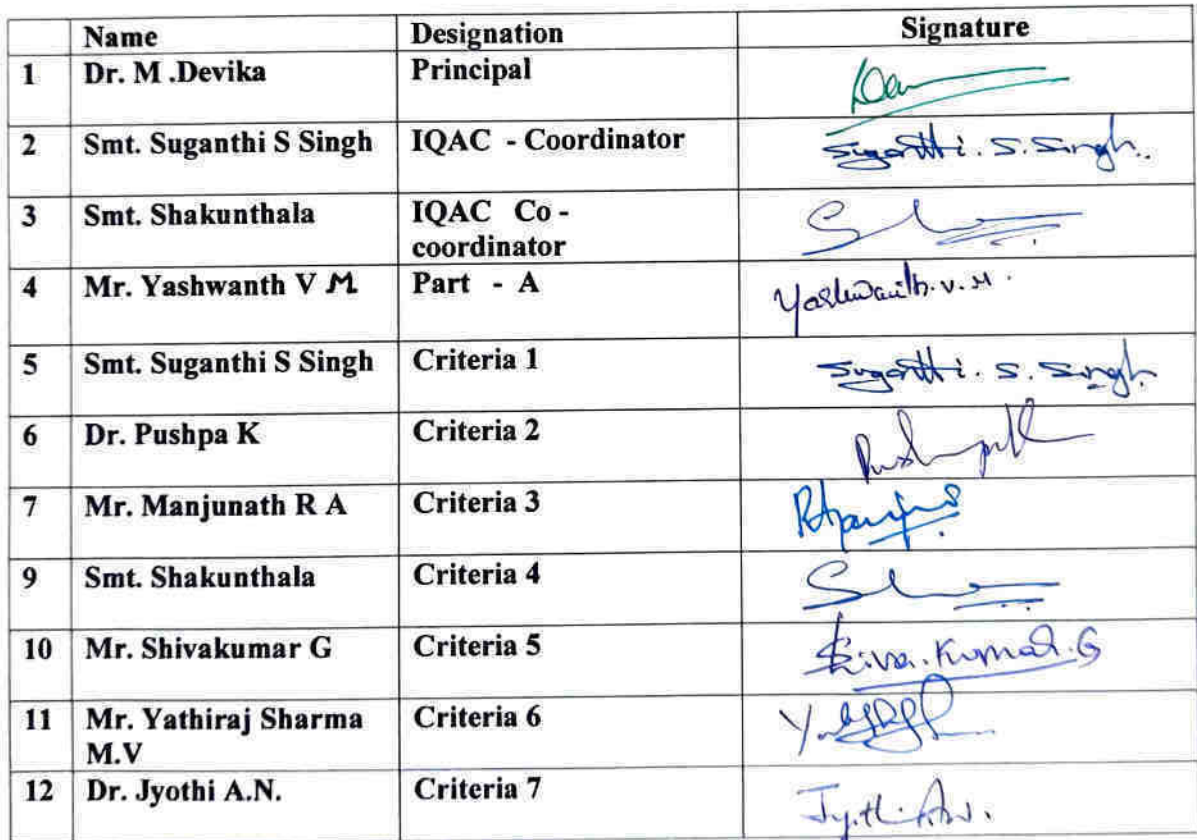 Name Designation Signature
1 Dr. M .Devika Principal
2 Smt. Suganthi S Singh IQAC - Coordinator Suganthi. S. Singh.
3 Smt. Shakunthala IQAC Co -
coordinator
4 Mr. Yashwanth V M Part - A Yashwanth. V. M.
5 Smt. Suganthi S Singh Criteria 1 Suganthi. S. Singh
6 Dr. Pushpa K Criteria 2
7 Mr. Manjunath R A Criteria 3
9 Smt. Shakunthala Criteria 4
10 Mr. Shivakumar G Criteria 5 Shiva.Kumar.G
11 Mr. Yathiraj Sharma Criteria 6
M.V
12 Dr. Jyothi A.N. Criteria 7 Jyothi.A.N.